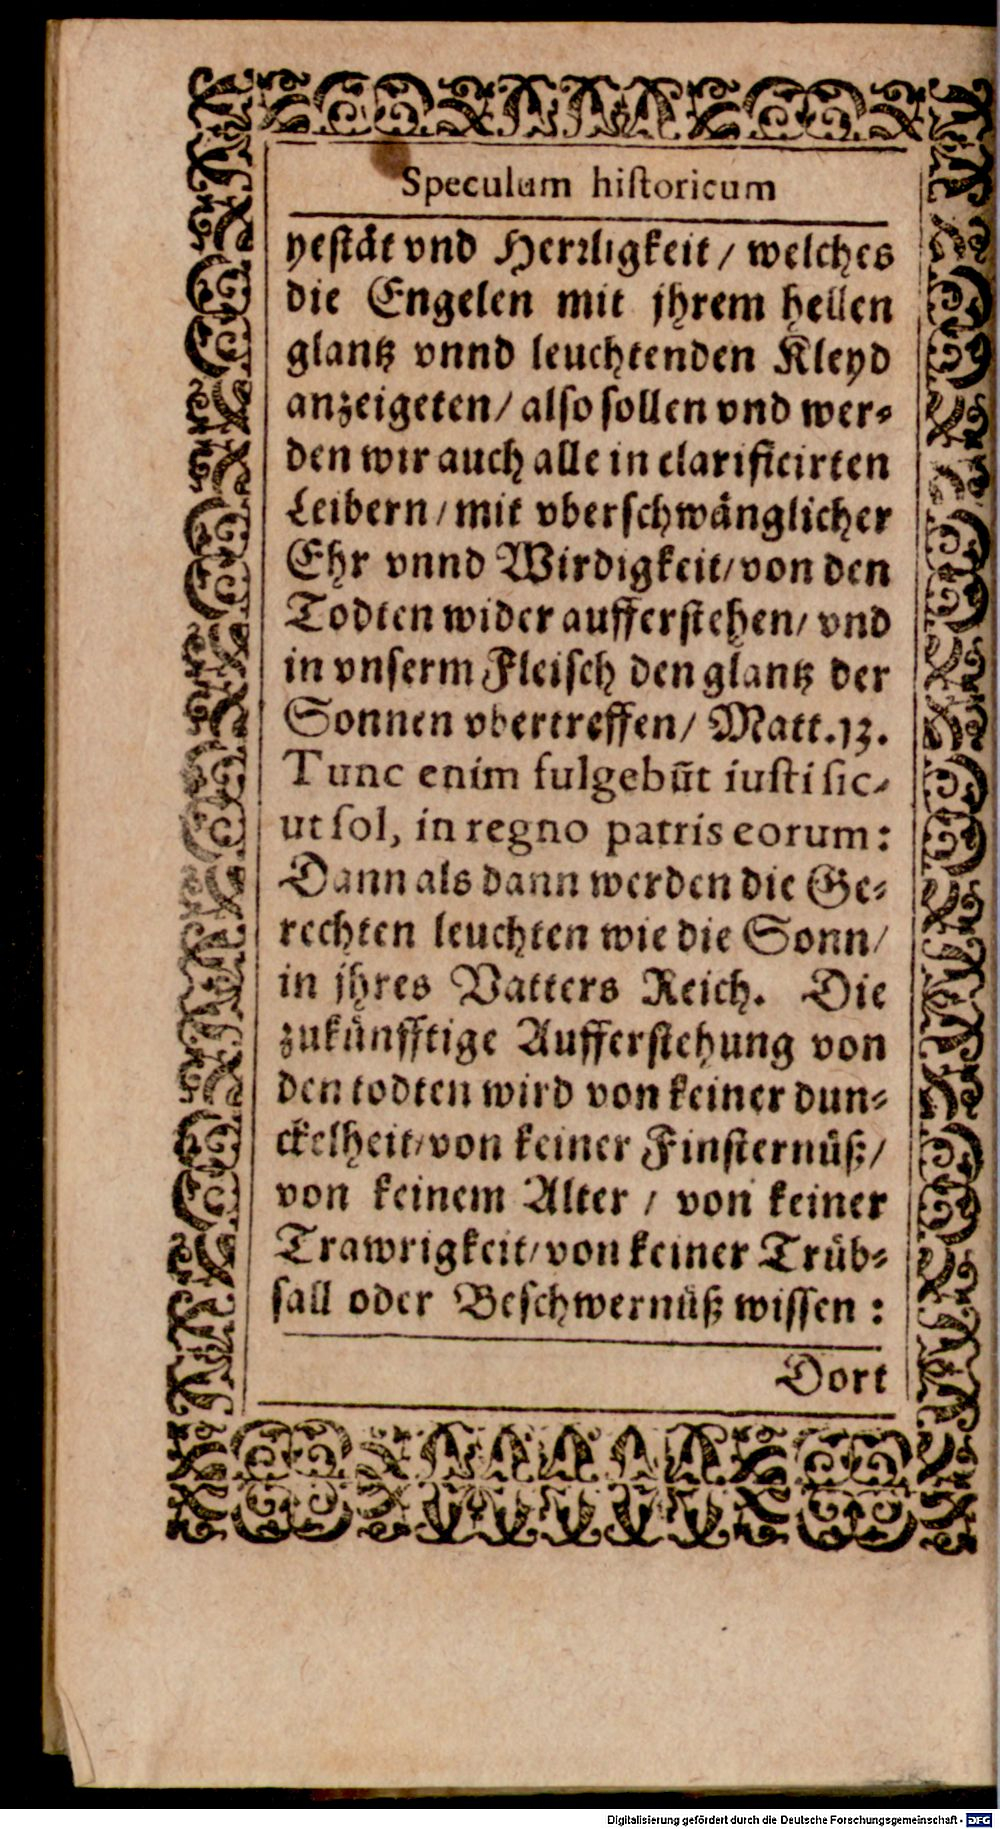 Speculum hiſtoricum
yeſtåt vnd Herꝛligkeit / welches
die Engelen mit jhrem hellen
glantz vnnd leuchtenden Kleyd
anzeigeten / alſo ſollen vnd wer⸗
den wir auch alle in clarificirten
Leibern / mit vberſchwånglicher
Ehr vnnd Wirdigkeit / von den
Todten wider aufferſtehen / vnd
in vnſerm Fleiſch den glantz der
Sonnen vbertreffen / Matt. 13.
Tunc enim fulgebũt iuſti ſic-
ut ſol, in regno patris eorum:
Dann als dann werden die Ge⸗
rechten leuchten wie die Sonn /
in jhres Vatters Reich. Die
zukünfftige Aufferſtehung von
den todten wird von keiner dun⸗
ckelheit / von keiner Finſternüß /
von keinem Alter / von keiner
Trawrigkeit / von keiner Trüb⸗
ſall oder Beſchwernüß wiſſen :
Dort
Digitalisierung gefördert durch die Deutsche Forschungsgemeinschaft - DFG